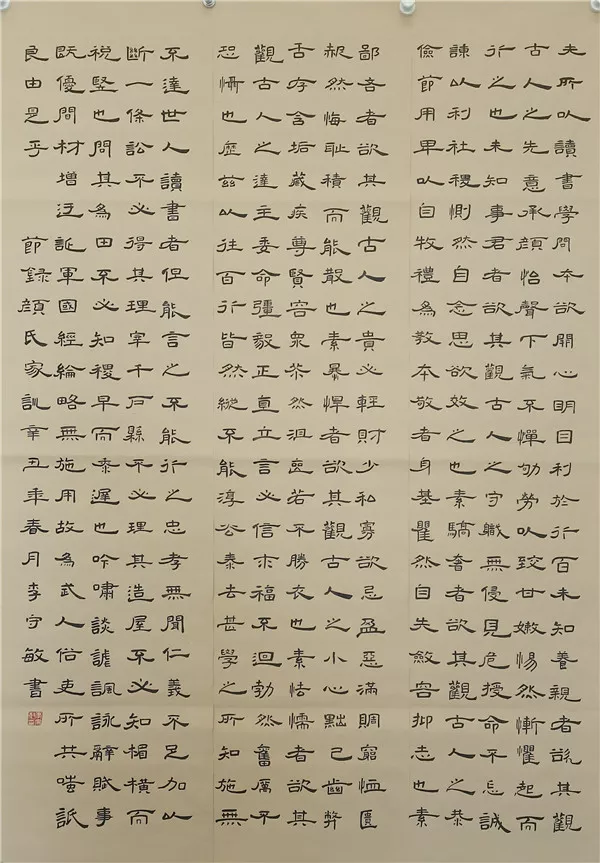 夫所以讀書學問本欲開心明目利於行百未知養親者欲其觀
古人之先意承顏怡聲下氣不憚劬勞以致甘嫩惕然慚懼起而
行之也未知事君者欲其觀古人之守職無侵見危授命不忘誠
諫以利社稷惻然自念思欲效之也素驕奢者欲其觀古人之恭
儉節用卑以自牧禮為教本敬者身基瞿然自失斂容抑志也素
鄙吝者欲其觀古人之貴必輕財少私寡欲忌盈惡滿賙窮恤匱
赧然悔恥積而能散也素暴悍者欲其觀古人之小心黜己齒弊
舌存含垢藏疾尊賢容眾苶然沮喪若不勝衣也素怯懦者欲其
觀古人之達主委命彊毅正直立言必信求福不迴勃然奮厲不
恐懾也歷茲以往百行皆然縱不能淳公泰去甚學之所知施無
不達世人讀書者但能言之不能行之忠孝無聞仁義不足加以
斷一條訟不必得其理宰千戶縣不必理其造屋不必知楣橫而
梲豎也問其為田不必知稷早而黍遲也吟嘯談謔諷詠辭賦事
既優問材增迂誕軍國經綸略無施用故為武人俗吏所共嗤詆
良由是乎 節録顏氏家訓辛丑年春月李守敏書